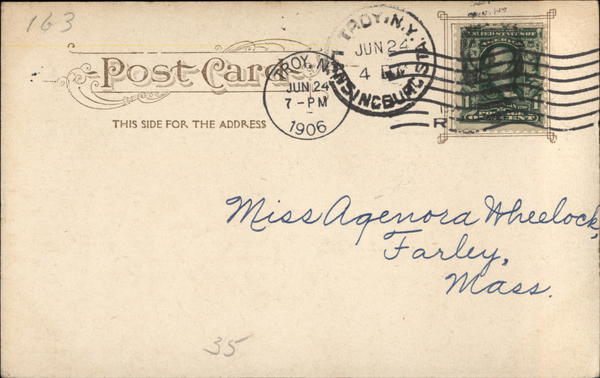 163
Post Card
THIS SIDE FOR THE ADDRESS
TROY, N.Y.
JUN 24
7-PM
1906
TROY, N.Y.
JUN 24
4 P
LANSINGBURG STA.
UNITED STATES OF
AMERICA
POSTAGE
ONE CENT
Miss Agenora Wheelock,
Farley,
Mass.
35